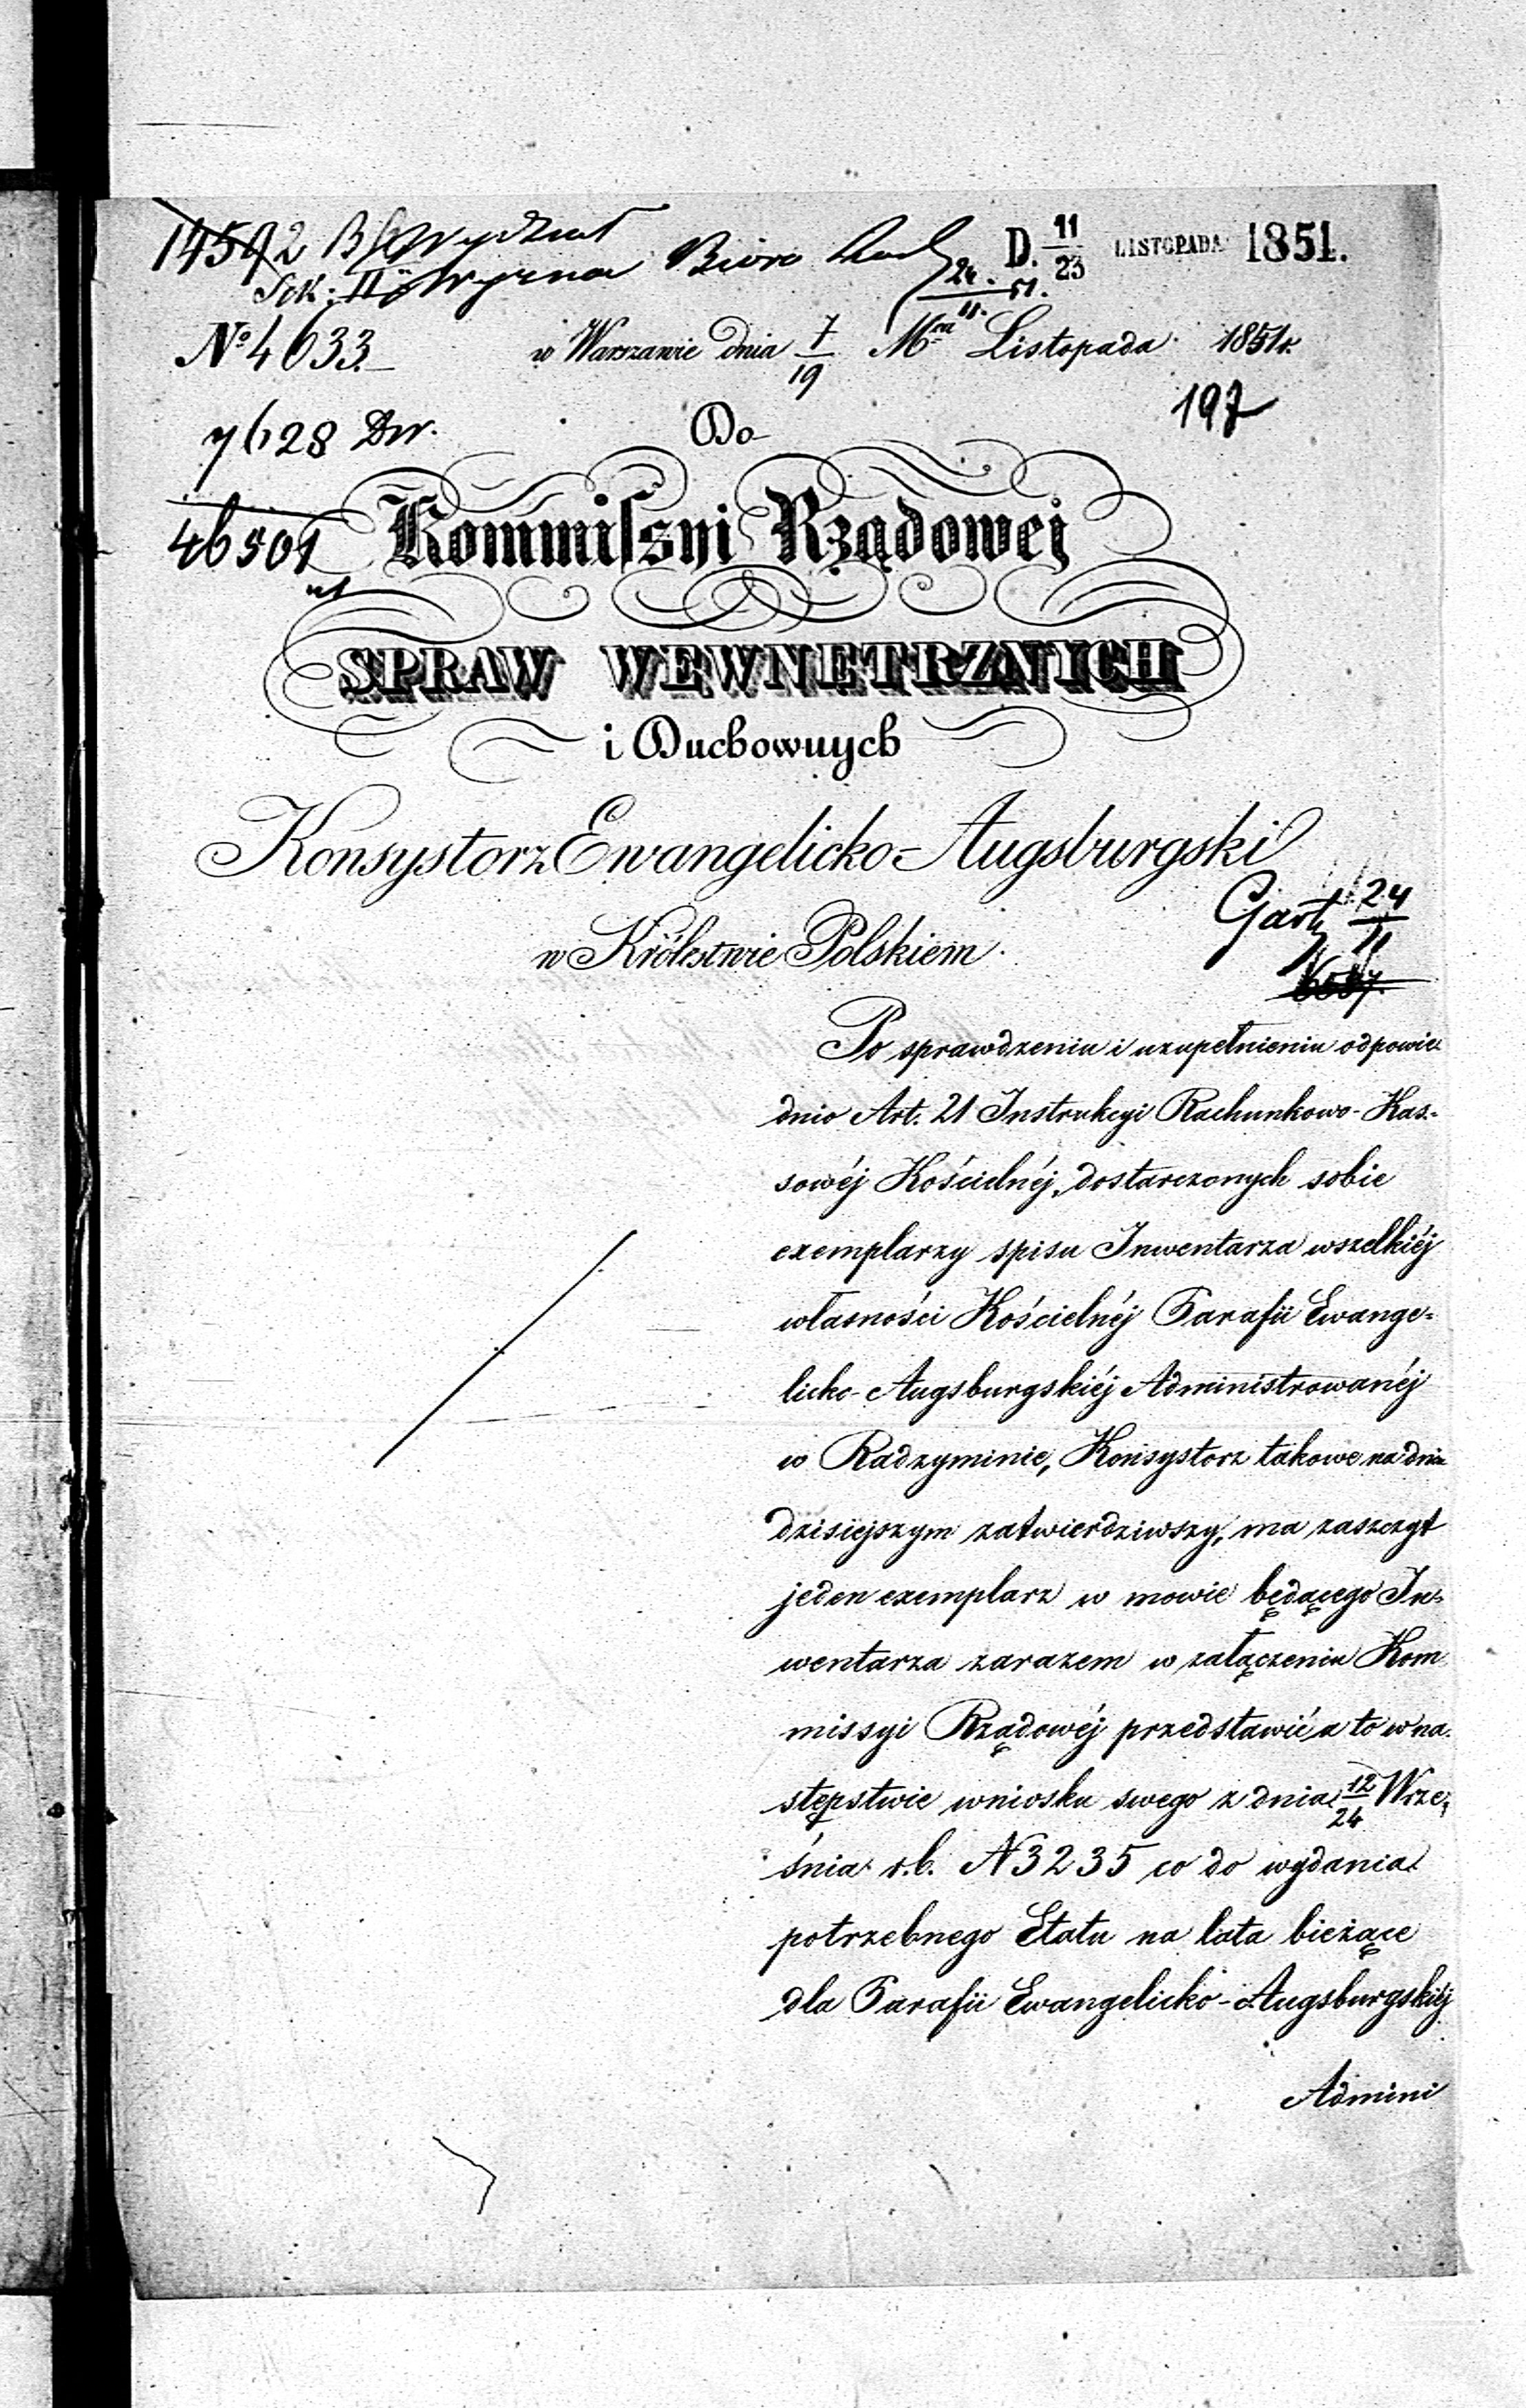 14592
Sek: II
Biuro
D. 11/23 LISTOPADA 1851.
24/11. 51.
№ 4633.
w Warszawie dnia 7/19 Mca Listopada 1851 r.
197
7628 Dw.
Do
46501
Kommissyi Rządowej
SPRAW WEWNETRZNYCH
i Duchownych
Konsystorz Ewangelicko-Augsburgski
w Królestwie Polskiem.
24/11
Po sprawdzeniu i uzupełnieniu odpowie-
dnio Art. 21 Instrukcyi Rachunkowo-Kas-
sowéj Kościelnéj, dostarczonych sobie
exemplarzy spisu Inwentarza wszelkiéj
własności Kościelnéj Parafii Ewange-
licko-Augsburgskiéj Administrowanéj
w Radzyminie, Konsystorz takowe na dniu
dzisiejszym zatwierdziwszy, ma zaszczyt
jeden exemplarz w mowie będącego In-
wentarza zarazem w załączeniu Kom
missyi Rządowéj przedstawić a to w na-
stępstwie wniosku swego z dnia 12/24 Wrze-
śnia r.b. N 3235 co do wydania
potrzebnego Etatu na lata bieżące
dla Parafii Ewangelicko-Augsburgskiéj
Admini